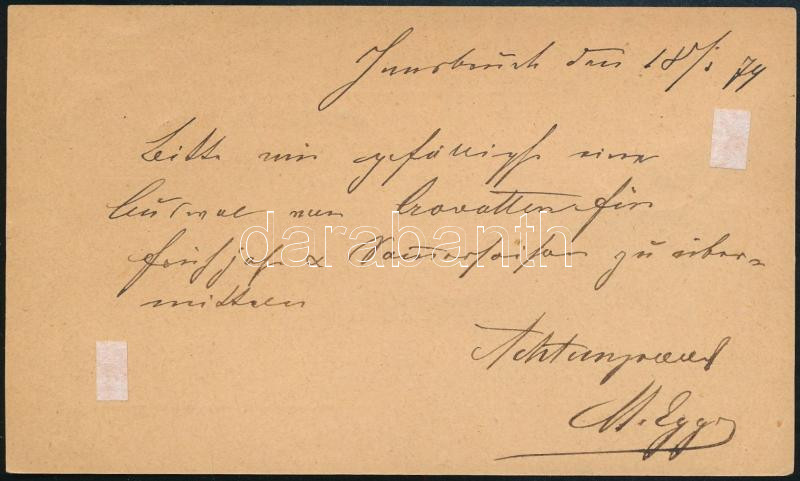 Innsbruck den 18/1 79
Bitte mir gefälligst eine
Auswal von Cravatten für
Frühjahr & Sommersaison zu über=
mitteln
darabanth
Achtungsvoll
M. Egger